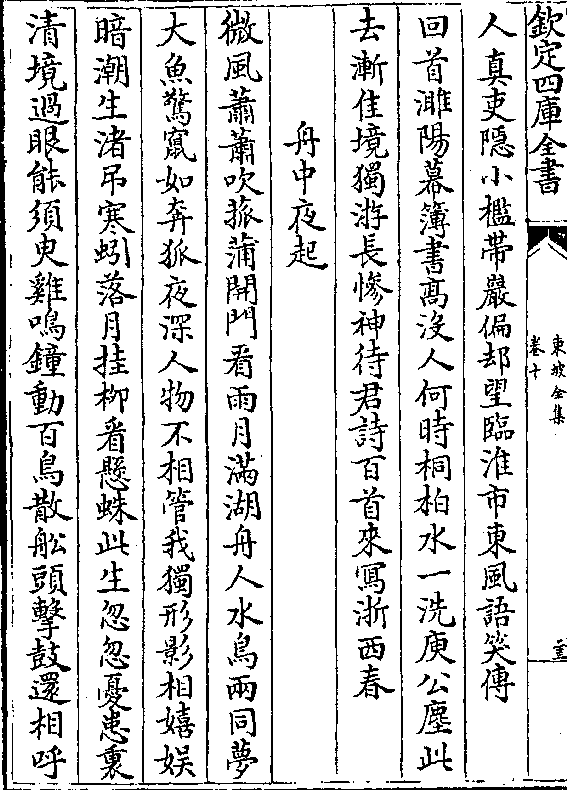 欽定四庫全書
東坡全集
卷十
人真吏隱小檻帶巖偏却望臨淮市東風語笑傳
回首濉陽幕簿書髙沒人何時桐柏水一洗庾公塵此
去漸佳境獨游長慘神待君詩百首來寫浙西春
舟中夜起
微風蕭蕭吹菰蒲開門看雨月滿湖舟人水鳥兩同夢
大魚驚竄如奔狐夜深人物不相管我獨形影相嬉娯
暗潮生渚吊寒蚓落月挂柳看懸蛛此生忽忽憂患裏
清境過眼能須臾雞鳴鐘動百鳥散船頭擊鼓還相呼